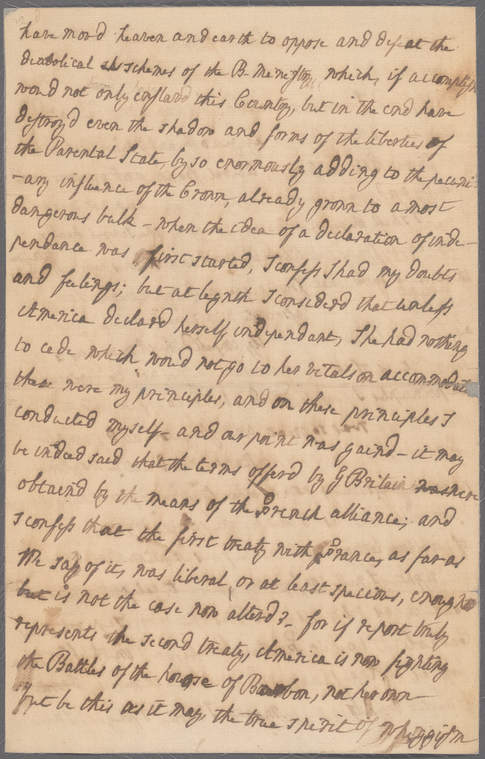 have mov'd heaven and earth to oppose and defeat the
diabolical schemes of the B. Ministry, which, if accomplish
wou'd not only enslavd this Country, but in the end have
destroy'd even the shadow and forms of the liberties of
the Parental State, by so enormously adding to the pecuni
-ary influence of the Crown, already grown to a most
dangerous bulk - when the idea of a declaration of inde-
pendance was first started, I confess I had my doubts
and feelings; but at legnth I considerd that unless
America declard herself independant, She had nothing
to cede which wou'd not go to her vitals on accommodati
these were my principles, and on these principles I
conducted myself - and our point was gaind - it may
be indeed said that the terms offerd by G Britain were
obtaind by the means of the French alliance; and
I confess that the first treaty with France, as far as
We saw of it, was liberal, or at least specious, enough
but is not the case now alterd? - for if report truly
represents the second treaty, America is now fighting
the Battles of the house of Bourbon, not her own -
but be this as it may, the true spirit of Whiggism